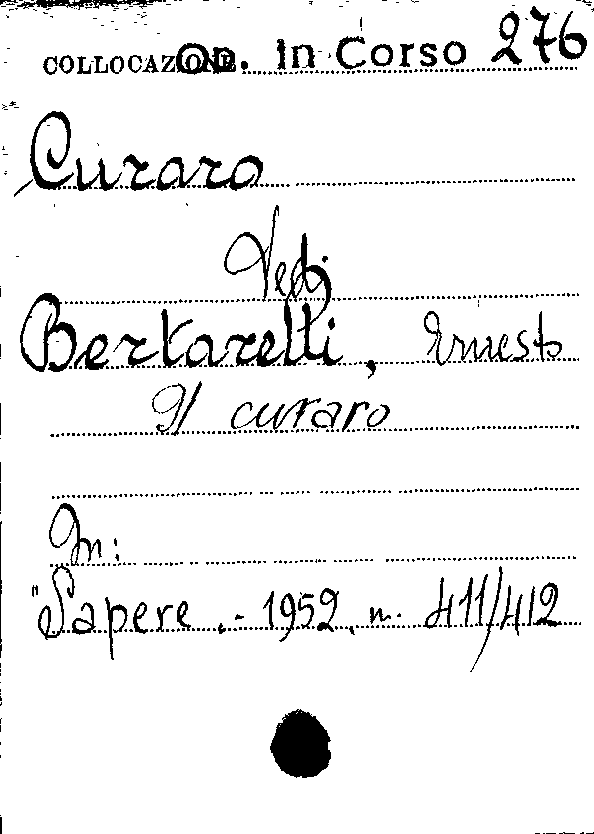 COLLOCAZIONE Op. in Corso 276
Curaro
Vedi
Bertarelli, Ernesto
Il curaro
In:
"Sapere.- 1952, n. 411/412